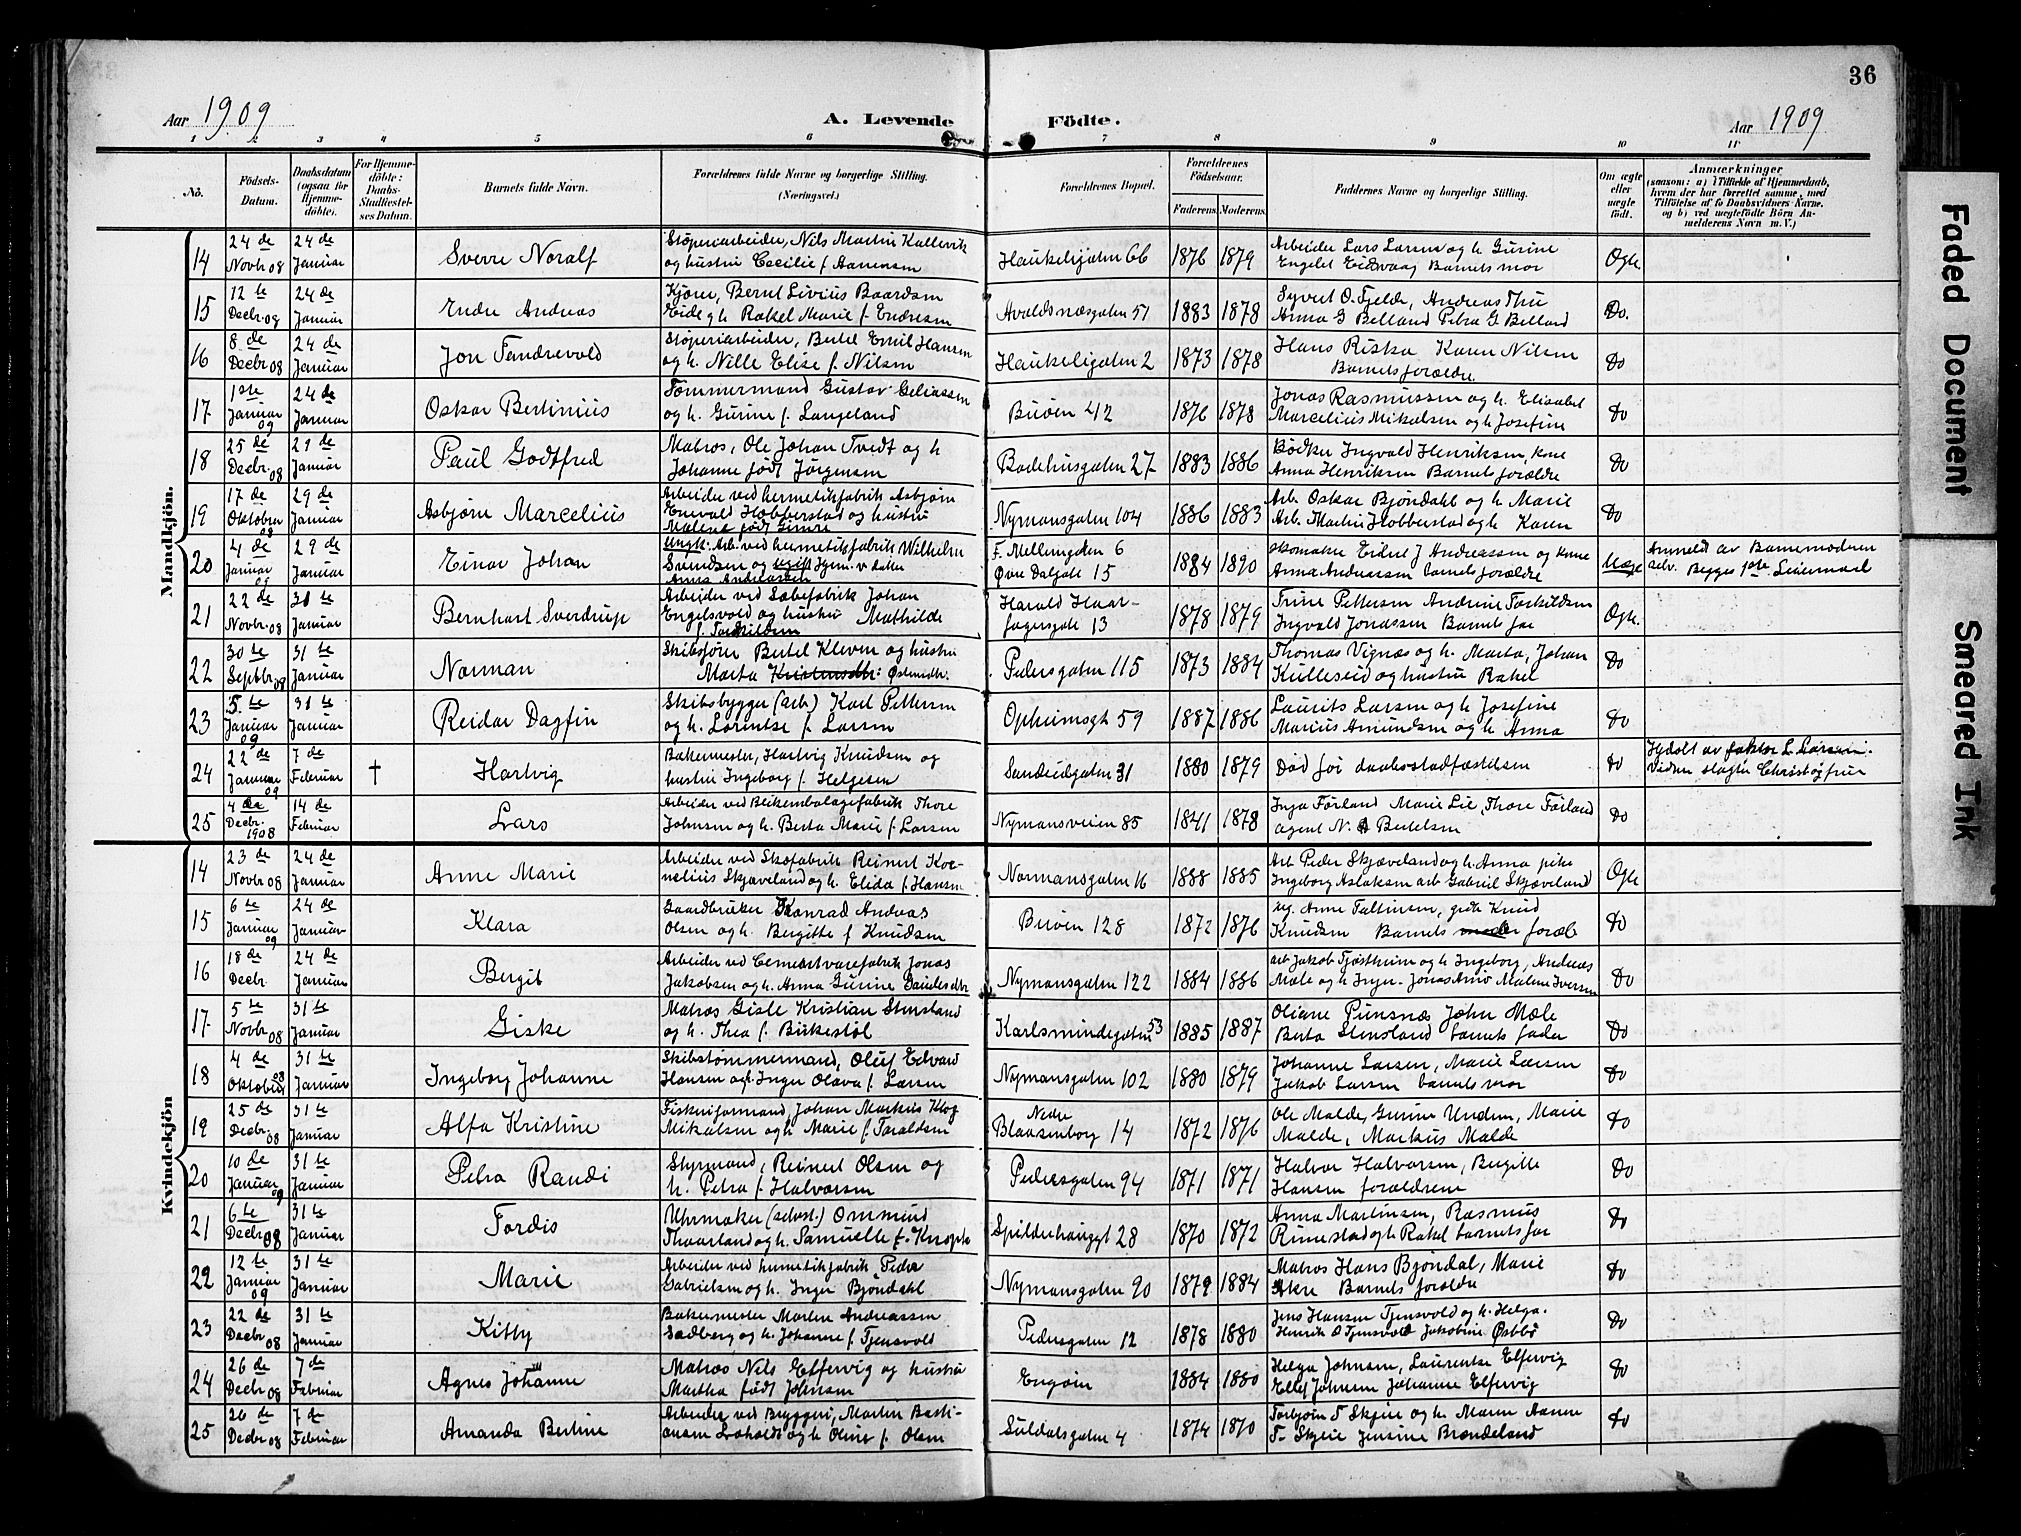 36
Aar 1909
A. Levende
Fødte.
Aar 1909
1 2 3 4 5 6 7 8 9 10 11
No.
Fødsels-
Datum.
Daabsdatum
(ogsaa for
Hjemme-
døbte).
For Hjemme-
døbte:
Daabs-
Stadfæstel-
ses Datum.
Barnets fulde Navn.
Forældrenes fulde Navne og borgerlige Stilling.
(Næringsvei.)
Forældrenes Bopæl.
Forældrenes
Fødselsaar.
Faderens. Moderens.
Faddernes Navne og borgerlige Stilling.
Om ægte
eller
uægte
født.
Anmærkninger
(saasom: a) i Tilfælde af Hjemmedaab,
hvem der har forrettet samme, med
Tilføielse af to Daabsvidners Navne.
og b) ved uægtefødte Børn An-
melderens Navn m. V.)
Mandkjøn.
14 24de Novbr 08 24de Januar Sverre Noralf
Støperiarbeider, Nils Martin Kallevik
og hustru Cecilie f. Aanensen
Haukeligaten 66 1876 1879
Arbeider Lars Larsen og h. Gurine
Engelet Eidsvaag Barnets mor
Ægte.
15 12te Decbr 08 24de Januar Endre Andreas
Kjører, Bernt Livius Baardsen
Eide og h. Rakel Marie f. Endresen
Avaldsnæsgaten 57 1883 1878
Syvert O. Fjelde, Andreas Thu
Anna G Belland Petra G Belland
Do.
16 8de Decbr 08 24de Januar Jon Tandrevold
Støperiarbeider, Bertel Emil Hansen
og h. Nille Elise f. Nilsen
Haukeligaten 2 1873 1878
Hans Riska Karen Nilsen
Barnets forældre.
Do
17 1ste Januar 09 24de Januar Oskar Bertinius
Tømmermand Gustav Geliassen
og h. Gurine f. Langeland
Buøen 42 1876 1878
Jonas Rasmussen og h. Elisabet
Marcelius Mikelsen og h Josefine
Do
18 25de Decbr. 08 21de Januar Paul Godtfred
Matros, Ole Johan Tvedt og h
Johanne født Jørgensen
Badehusgaten 27 1883 1886
Bødker Ingvald Henriksen, kone
Anna Henriksen Barnets forældre
Do
19 17de Oktober 08 29de Januar Asbjørn Marcelius
Arbeider ved hermetikfabrik Asbjørn
Enevald Hobberstad og hustru
Malene født Gimre
Nymansgaten 104 1886 1883
Arb. Oskar Bjøndahl og h. Marie
Arb. Martin Hobberstad og h. Karen
Do
20 4de Januar 09 29de Januar Einar Johan
Ungk: Arb. ved hermetikfabrik Wilhelm
Svendsen og ugift Hjem. v datter
Anna Andreassen
F. Mellemgaten 6
Øvre Dalgate 15 1884 1890
Skomaker Eidrel J Andreassen og kone
Anna Andreassen barnets forældre
Uægte
Anmeldt av Barnemoderen
selv. Begges 1ste Leiermaal
21 22de Novbr. 08 31te Januar Bernhart Sverdrup
Arbeider ved Sæbefabrik Johan
Engelsvold og hustru Mathilde
f. Torkildsen
Harald Haar-
fagersgate 13 1878 1879
Trine Pettersen Andrine Torkildsen
Ingvald Jonassen Barnets far
Ægte.
22 30te Septbr 08 31te Januar Norman
Skibsfører Bertel Kleven og hustru
Marta Kristensdtr: Østensdtr.
Pedersgaten 115 1873 1884
Thomas Vignæs og h. Marta, Johan
Kulleseid og hustru Rakel
Do
23 5te Januar 09 31te Januar Reidar Dagfin
Skibsbygger (arb) Karl Pettersen
og h. Lorentse f. Larsen
Opheimsgt 59 1887 1886
Laurits Larsen og h Josefine
Marius Amundsen og h Anna
Do
24 22de Januar 09 7de Februar † Hartvig
Bakermester, Hartvig Knudsen og
hustru Ingeborg f. Helgesen
Sandeidgaten 31 1880 1879
Død før daabsstadfæstelsen
Do
Hjdøbt av faktor L. Larsen.
Vidner slagter Christof fruer
25 4de Decbr. 1908 14de Februar Lars
Arbeider ved Blikembalagefabrik Thore
Johnsen og h. Berta Marie f. Larsen
Nymansveien 85 1841 1878
Inga Førland Marie Lie, Thore Førland
agent N. A Bertelsen
Do
Kvindekjøn
14 23de Novbr 08 24de Januar Anne Marie
Arbeider ved Skofabrik Reinert Kor-
nelius Skjæveland og h. Elida f. Hansen
Normansgaten 16 1888 1885
Arb Peder Skjæveland og h. Anna pike
Ingeborg Aslaksen arb Gabriel Skjæveland
Ægte
15 6te Januar 09 24de Januar Klara
Gaardbruker Konrad Andreas
Olsen og h. Bergitte f Knudsen
Buøen 128 1872 1876
Anne Faltinsen, Knud
Knudsen Barnets moder foræl
Do
16 18de Decbr. 24de Januar Bergit
Arbeider ved Cementvarefabrik Jonas
Jakobsen og h. Anna Gurine
Nymansgaten 122 1884 1886
arb Jakob Tjøstheim og h Ingeborg, Andreas
Mæle og h Inger - Jonas Malene Iversen
Do
17 5te Novbr 08 31te Januar Giske
Matros Gisle Kristian Stensland
og h. Thea f. Birkestøl
Karlsmindegaten 53 1885 1887
Oliane Punsnæs John Mæle
Berta Stensland barnets fader
Do
18 4de Oktober 08 31te Januar Ingeborg Johanne
Skibstømmermand, Oluf Edvard
Hansen og h. Inger Olava f. Larsen
Nymansgaten 102 1880 1879
Johanne Larsen, Marie Larsen
Jakob Larsen barnets mor
Do
19 25de Decbr. 08 31te Januar Alfa Kristine
Fiskeriformand, Johan Markus Klog
Mikalsen og h Marie f. Taraldsen
Nedre
Blaasenborg 14 1872 1876
Ole Malde, Gurine Undem, Marie
Malde, Markus Malde
Do
20 10de Januar 09 31te Januar Petra Randi
Styrmand, Reinert Olsen og
h. Petra f. Halvorsen
Pedersgaten 94 1871 1871
Halvor Halvorsen, Bergitte
Hansen forældrene
Do
21 6te Decbr 08 31te Januar Tordis
Uhrmaker (selvst.) Ommund
Thaarland og h. Samuelle f. Knoph
Spilderhauggt 28 1870 1872
Anna Martinsen, Rasmus
Rimestad og h Rakel barnets far
Do
22 12te Januar 09 31te Januar Marie
Arbeider ved hermetikfabrik Peder
Gabrielsen og h. Inger Bjøndahl
Nymansgaten 90 1879 1884
Matros Hans Bjøndal, Marie
Akre Barnets forældre
Do
23 22de Decbr. 08 31te Januar Kitty
Bakermester Martin Andreassen
Sædberg og h. Johanne f. Tjensvold
Pedersgaten 12 1878 1880
Jens Hansen Tjensvold og h. Helga.
Henrik O Tjensvold Jakobine Østbø
Do
24 26de Decbr 08 7de Februar Agnes Johanne
Matros Nils Elfervig og hustru
Martha født Johnsen
Engøen 1884 1880
Helga Johnsen, Laurentse Elfervig
Ellef Johnsen Johanne Elfervig
Do
25 26de Decbr 08 7de Februar Amanda Bertine
Arbeider ved Bryggeri, Martin Basti-
ansen Lohaldt og h Oline f. Olsen
Suldalsgaten 4 1874 1870
Torbjørn T Skjeie og h. Maren Aanen
T. Skjeie Jensine Brændeland
Do
Faded Document
Smeared Ink